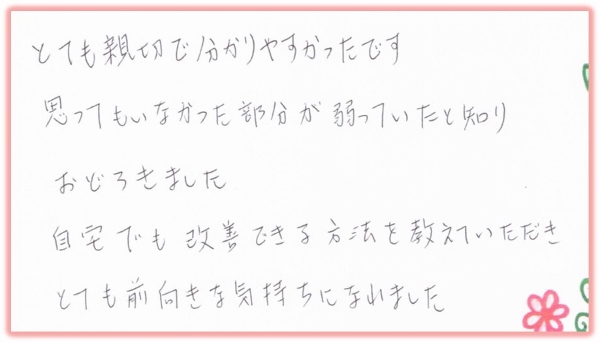 とても親切で分かりやすかったです
思ってもいなかった部分が弱っていたと知り
おどろきました
自宅でも改善できる方法を教えていただき
とても前向きな気持ちになれました